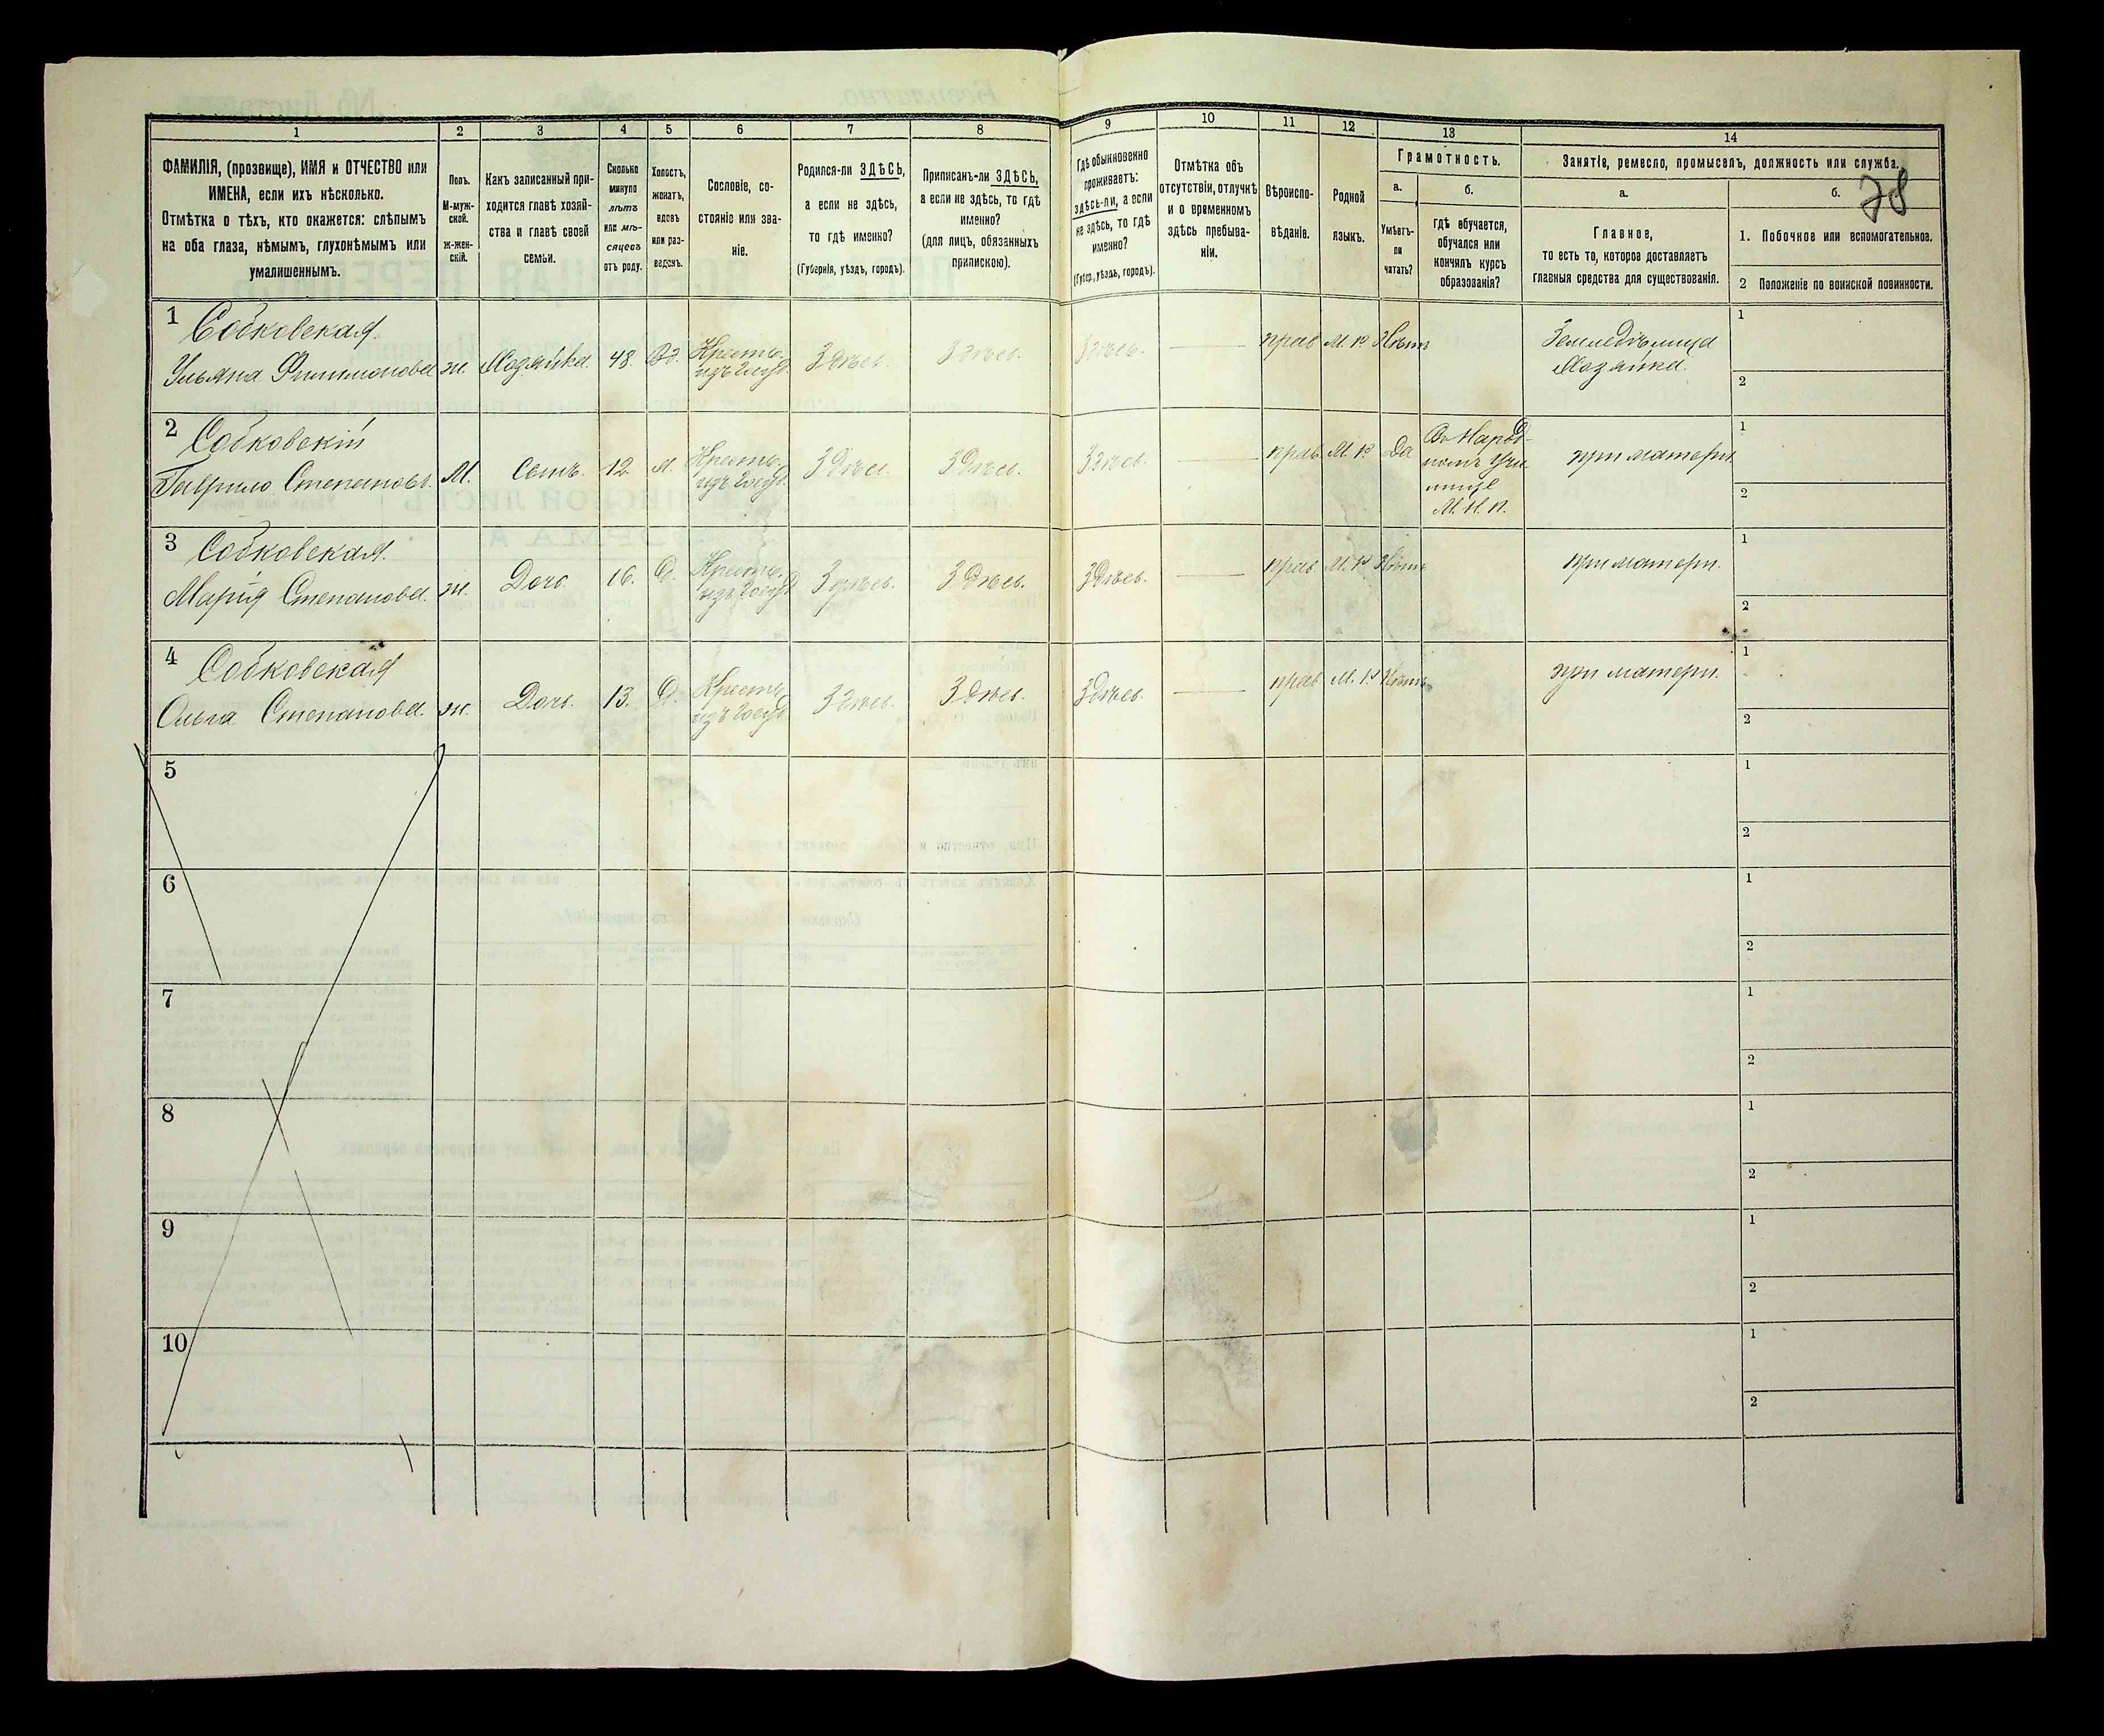 78
1 2 3 4 5 6 7 8 9 10 11 12 13 14
ФАМИЛІЯ, (прозвище), ИМЯ и ОТЧЕСТВО или
ИМЕНА, если ихъ нѣсколько.
Отмѣтка о тѣхъ, кто окажется: слѣпымъ
на оба глаза, нѣмымъ, глухонѣмымъ или
умалишеннымъ.
Полъ.
М-муж-
ской.
ж-жен-
скій.
Какъ записанный при-
ходится главѣ хозяй-
ства и главѣ своей
семьи.
Сколько
минуло
лѣтъ
или мѣ-
сяцевъ
отъ роду.
Холостъ,
женатъ,
вдовъ
или раз-
веденъ.
Сословіе, со-
стояніе или зва-
ніе.
Родился-ли ЗДѢСЬ,
а если не здѣсь,
то гдѣ именно?
(Губернія, уѣздъ, городъ).
Приписанъ-ли ЗДѢСЬ,
а если не здѣсь, то гдѣ
именно?
(для лицъ, обязанныхъ
припискою).
Гдѣ обыкновенно
проживаетъ:
здѣсь-ли, а если
не здѣсь, то гдѣ
именно?
(Губер., уѣздъ, городъ).
Отмѣтка объ
отсутствіи, отлучкѣ
и о временномъ
здѣсь пребыва-
ніи.
Вѣроиспо-
вѣданіе.
Родной
языкъ.
Грамотность.
а.
Умѣетъ-
ли
читать?
б.
гдѣ обучается,
обучался или
кончилъ курсъ
образованія?
Занятіе, ремесло, промыселъ, должность или служба.
а.
Главное,
то есть то, которое доставляетъ
главныя средства для существованія.
б.
1. Побочное или вспомогательное.
2 Положеніе по воинской повинности.
1 Собковская
Ульяна Филимонова ж. Хозяйка. 48. Вд. Кресть. изъ госуд. Здѣсь. Здѣсь. Здѣсь. — прав М. Р Нѣтъ Земледѣлица
Хозяйка.
1
2
2 Собковскій
Гаврило Степановъ. М. Сынъ. 12. х. Кресть. изъ госуд. Здѣсь. Здѣсь. Здѣсь. — прав. М. Р Да Въ Народ-
номъ Учи-
лищѣ
М. Н. П.
при матери
1
2
3 Собковская.
Марія Степанова. ж. Дочь. 16. Д. Кресть. изъ госуд. Здѣсь. Здѣсь. Здѣсь. — прав. М. Р Нѣтъ при матери.
1
2
4 Собковская
Ольга Степанова. ж. Дочь. 13. Д. Кресть. изъ госуд. Здѣсь. Здѣсь. Здѣсь. — прав М. Р Нѣтъ при матери.
1
2
5
1
2
6
1
2
7
1
2
8
1
2
9
1
2
10
1
2